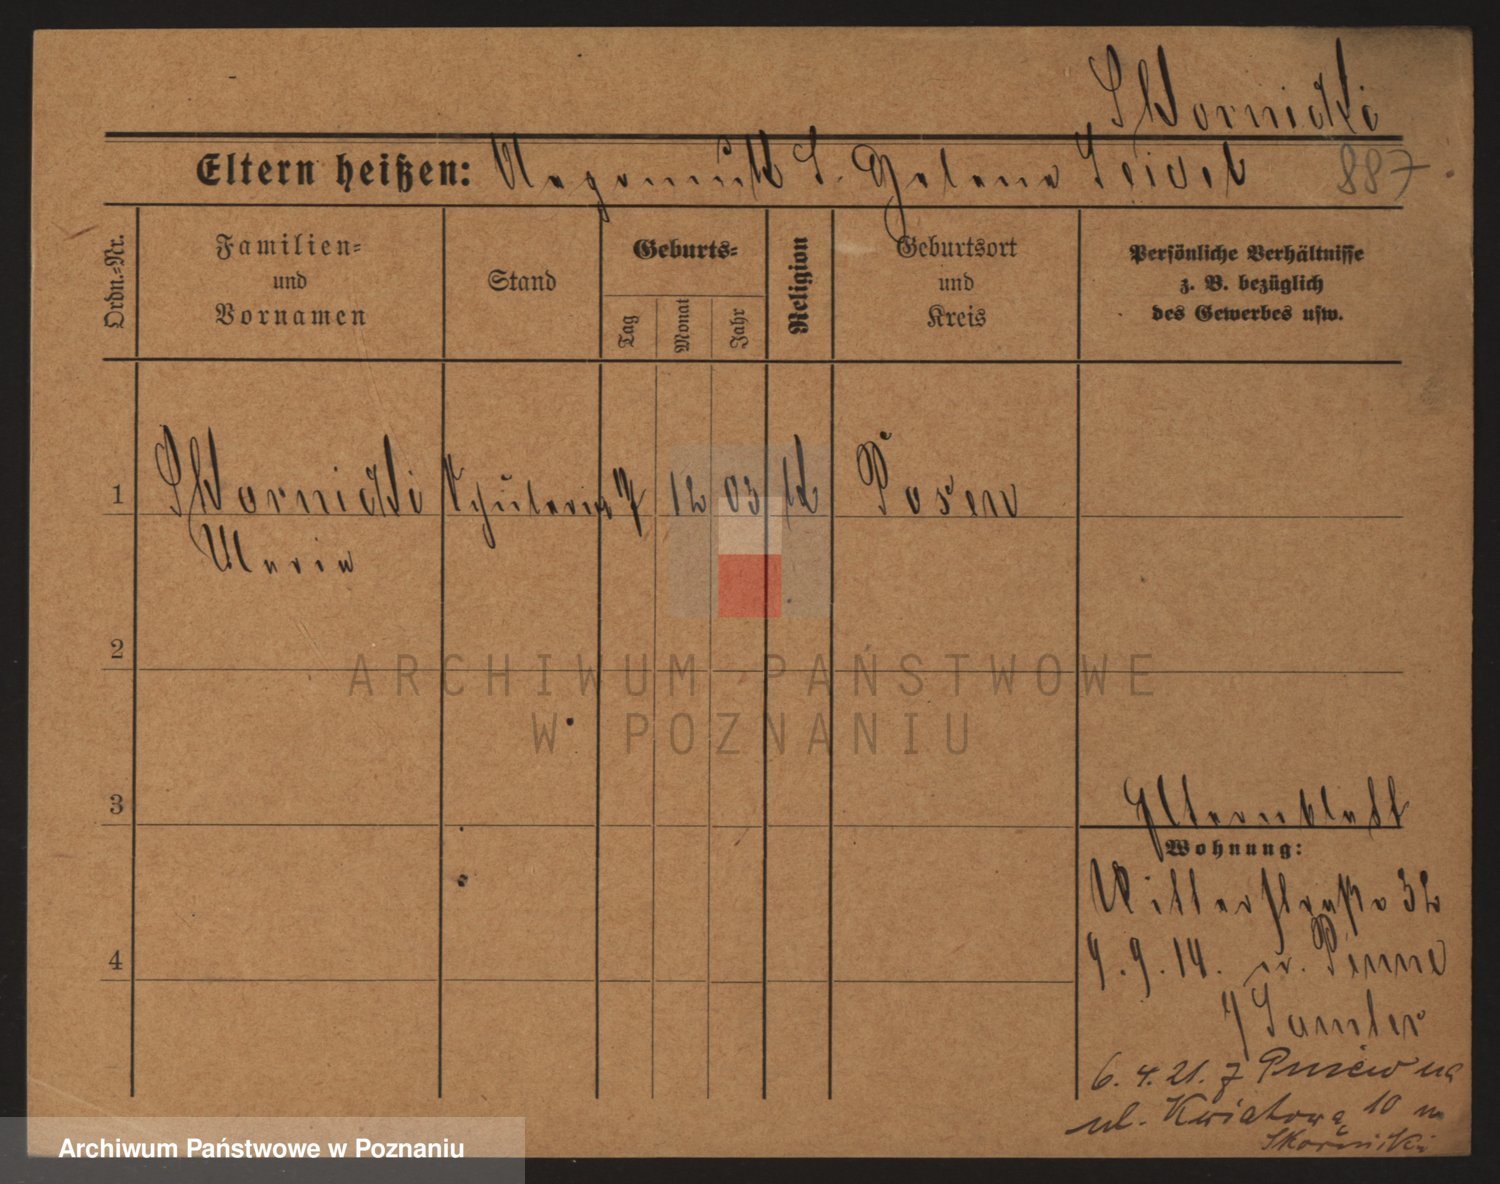 Skornicki
Eltern heißen: S. Helena Seidel 887
Ordn.-Nr.
Familien-
und
Vornamen
Stand
Geburts-
Tag
Monat
Jahr
Religion
Geburtsort
und
Kreis
Persönliche Verhältnisse
z. B. bezüglich
des Gewerbes usw.
1 Skornicki Schülerin 7 12 03 k Posen
Maria
2
ARCHIWUM PAŃSTWOWE
W POZNANIU
3
Elternblatt
Wohnung:
Ritterstraße 32
4
9.9.14. n. Pinne
Samter
6.4.21. z Pniew na
ul. Kwiatową 10 m
Skornicki
Archiwum Państwowe w Poznaniu